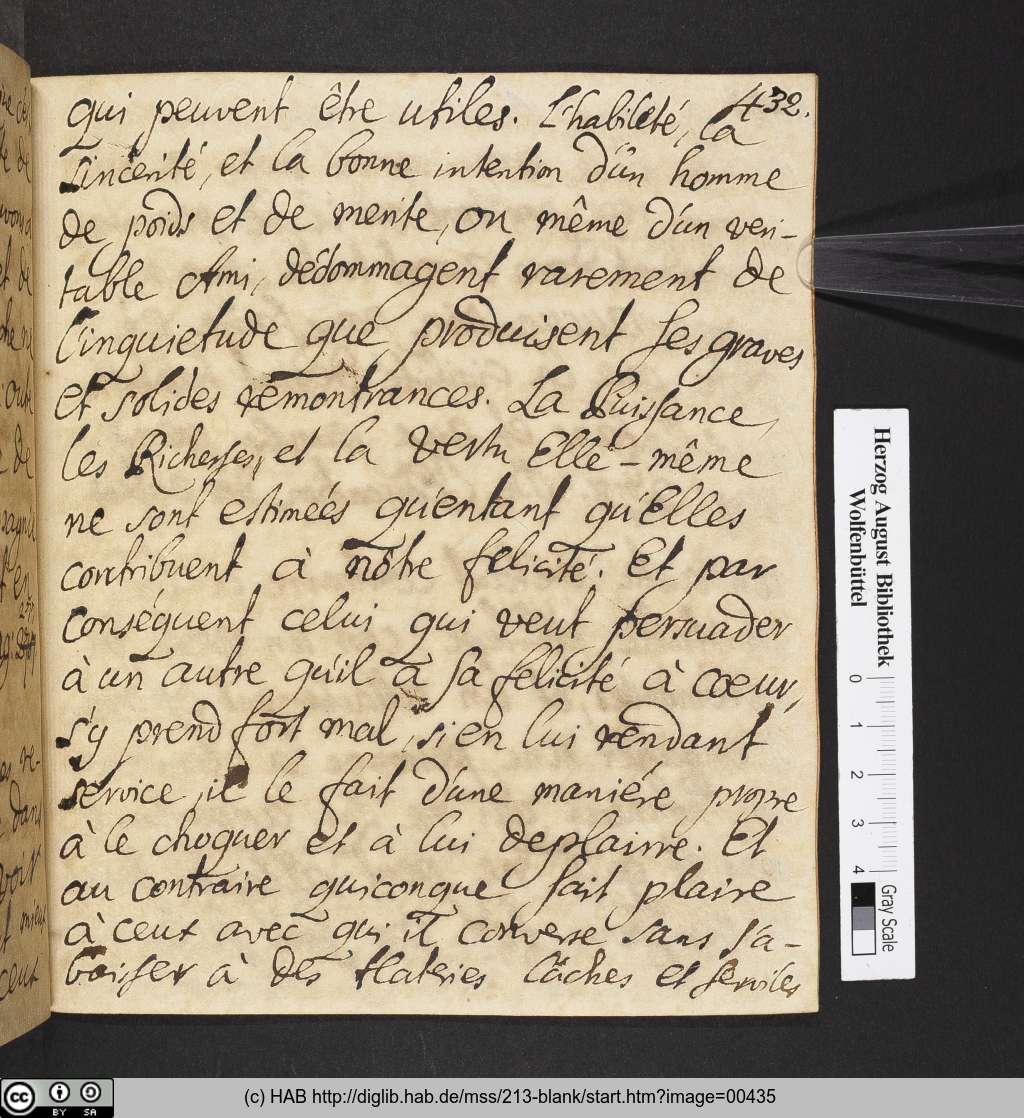 432.
qui peuvent être utiles. L'habileté, la
sincerité, et la bonne intention d'un homme
de poids et de merite, ou même d'un veri-
table Ami, dédommagent rarement de
l'inquietude que produisent ses graves
et solides remontrances. La Puissance,
les Richesses, et la vertu Elle-même
ne sont estimées qu'entant qu'Elles
contribuent à nôtre felicité. Et par
conséquent celui qui veut persuader
à un autre qu'il a sa felicité à cœur,
s'y prend fort mal, si en lui rendant
service, il le fait d'une maniére propre
à le choquer et à lui deplairre. Et
au contraire quiconque sait plaire
à ceux avec qui il converse sans s'a-
baisser à des flateries lâches et serviles
Herzog August Bibliothek
Wolfenbüttel
0 1 2 3 4
Gray Scale
cc BY SA
(c) HAB http://diglib.hab.de/mss/213-blank/start.htm?image=00435